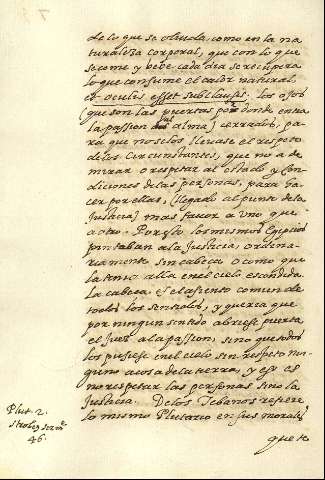 de lo que se oluida como en la na
turaleza corporal, que con lo que
se come y bebe cada dia se recupera
lo que consume el calor natural.
et oculis esset sublausis. los ojos
(que son las puertas por donde entra
la passion al alma) cerrados, pa
ra que no se los lleuase el respeto
de los circunstantes, que no a de
mirar o respetar al estado y con
diciones de las personas, para ha
cer por ellas, (llegado al punto de la
Justicia) mas fauor a uno que
a otro. Por esto los mismos Egipcios
pintaban a la Justicia, ordina
riamente sin cabeca o como que
la tenia alla en el cielo escondida
La cabeca es el asiento comun de
todos los sentidos, y queria que
por ningun sentido abriese puerta
el Juez a la passion, sino que todos
los pusiese en el cielo sin respeto nin
guno a cosa de la tierra, y esso es
no respetar las personas sino la
Justicia. De los Tebanos refiere
lo mismo Plutarco en sus morales
que te
Plut. 2.
Stobeo serm
46.